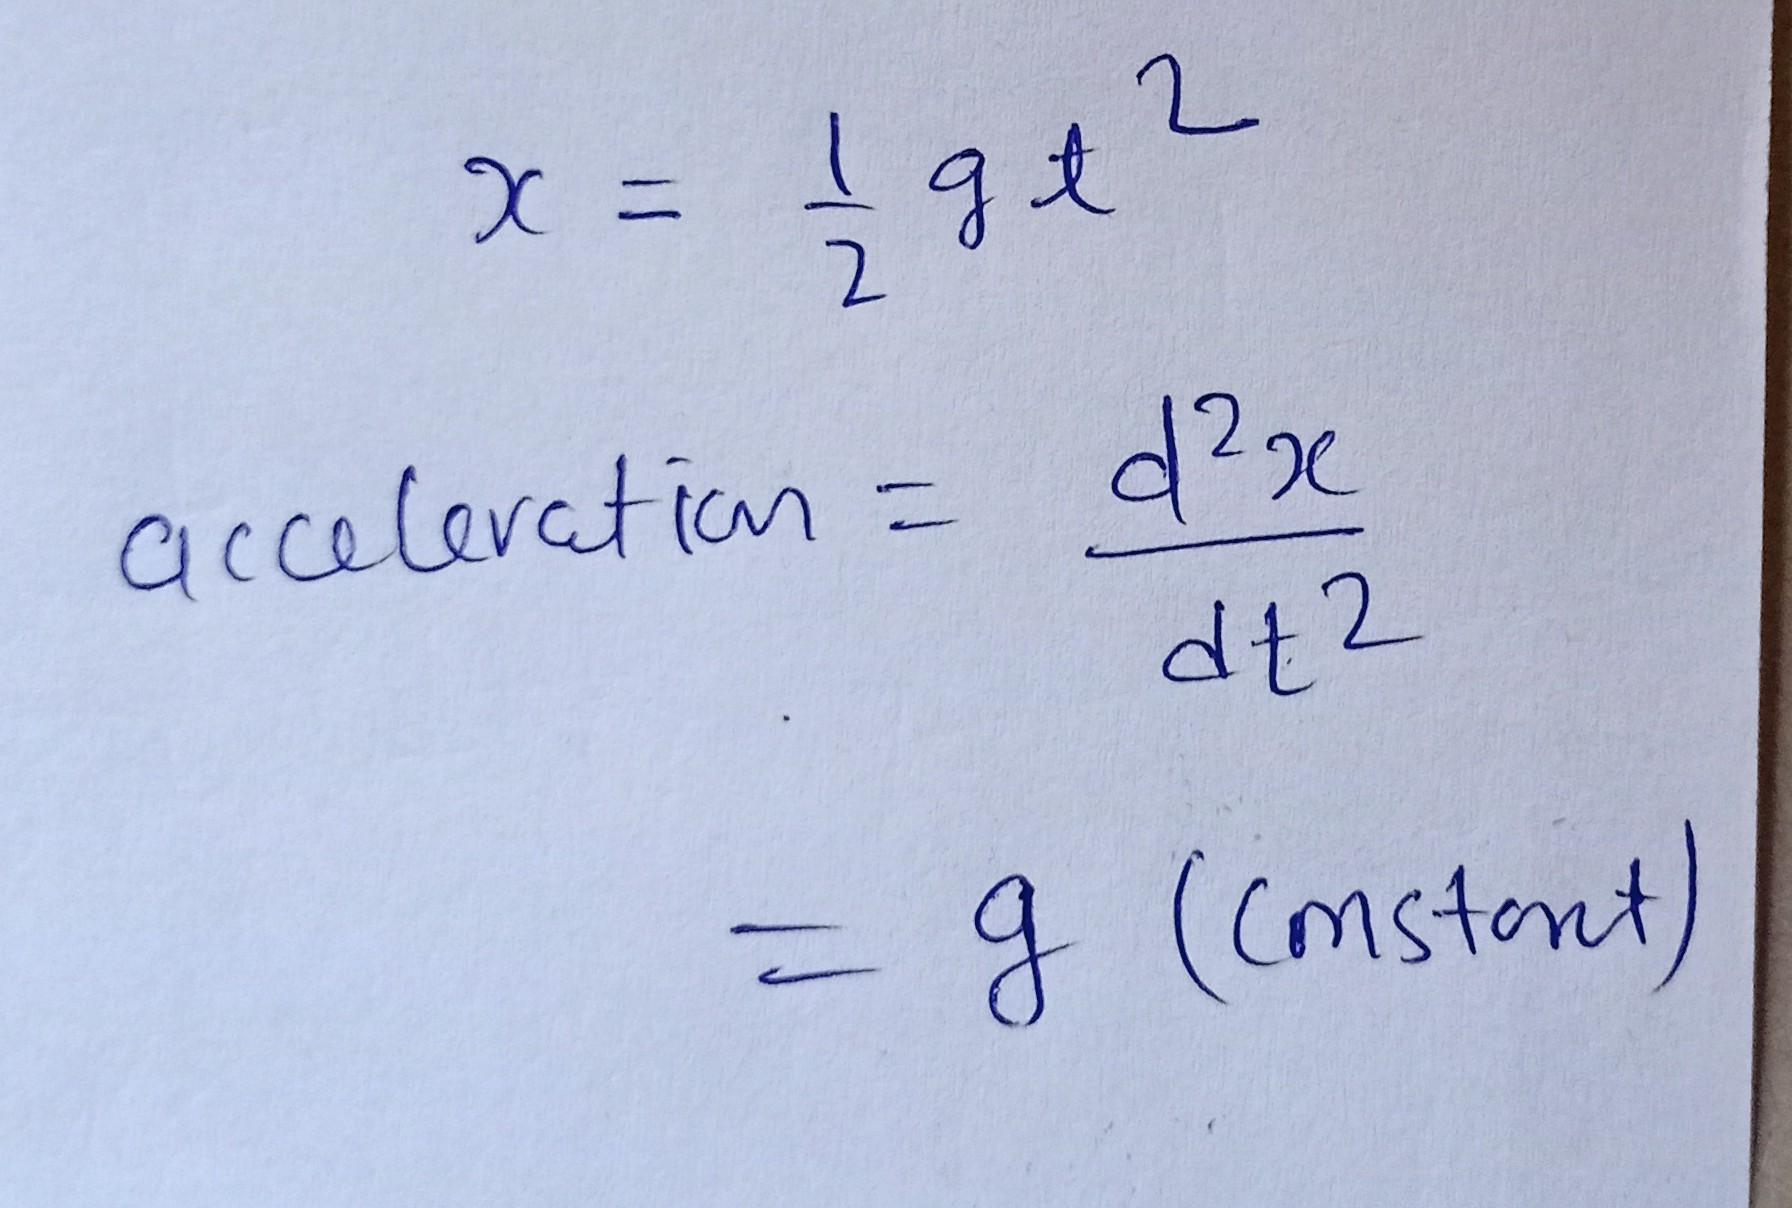 x = 1/2 g t²
acceleration = d²x/dt²
= g (constant)